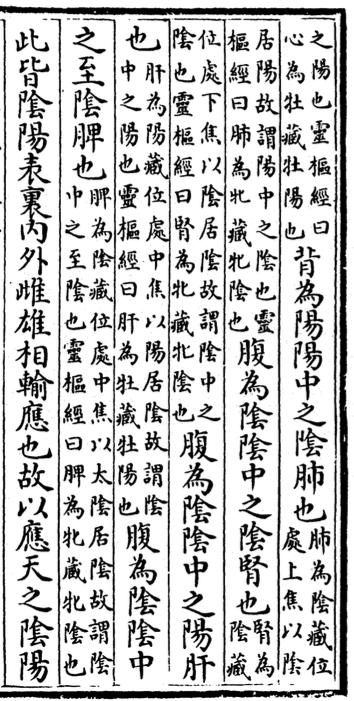 之陽也靈樞經曰心為牡藏牡陽也背為陽陽中之陰肺也肺為陰藏位處上焦以陰
居陽故謂陽中之陰也靈樞經曰肺為牝藏牝陰也腹為陰陰中之陰腎也腎為陰藏
位處下焦以陰居陰故謂陰中之陰也靈樞經曰腎為牝藏牝陰也腹為陰陰中之陽肝
也肝為陽藏位處中焦以陽居陰故謂陰中之陽也靈樞經曰肝為牡藏牡陽也腹為陰陰中
之至陰脾也脾為陰藏位處中焦以太陰居陰故謂陰中之至陰也靈樞經曰脾為牝藏牝陰也
此皆陰陽表裏內外雌雄相輸應也故以應天之陰陽